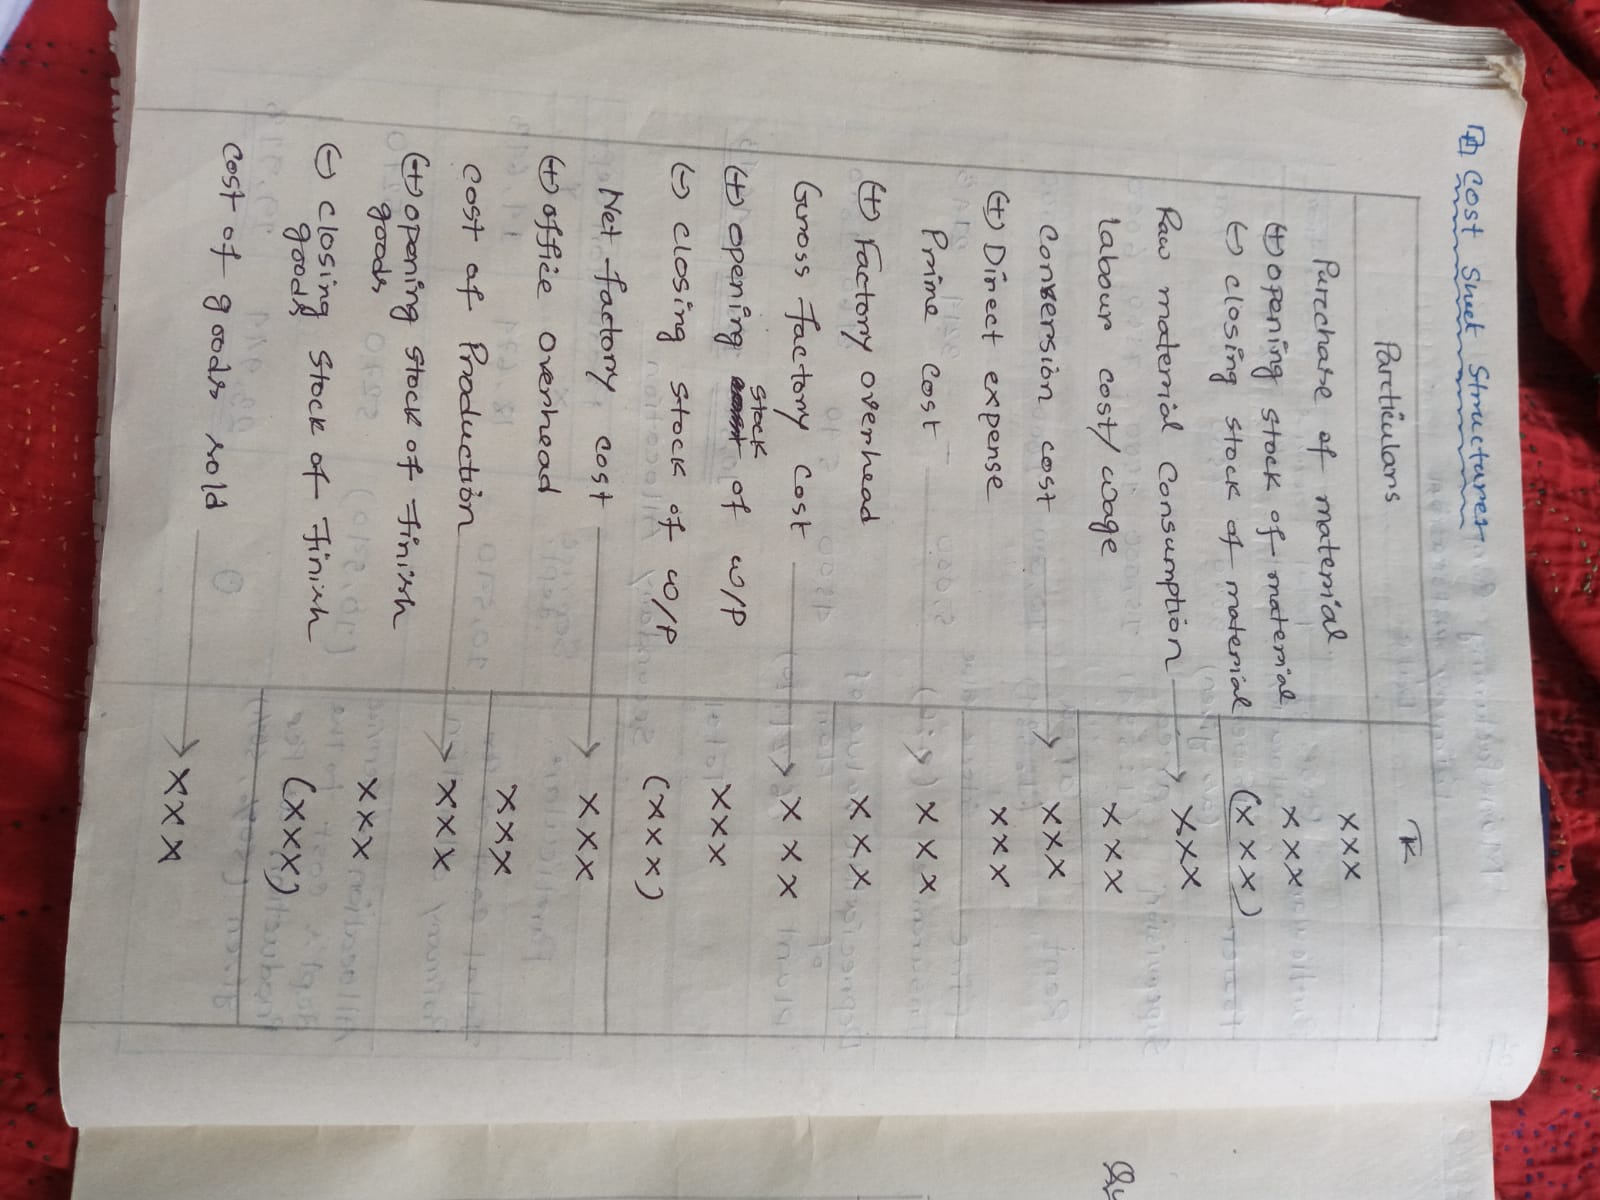 Cost Sheet Structures
Particulars Tk
Purchase of material xxx
(+) opening stock of material xxx
(-) closing stock of material (xxx)
Raw material Consumption xxx
labour cost/wage xxx
Conversion cost xxx
(+) Direct expense xxx
Prime cost xxx
(+) Factory overhead xxx
Gross factory cost xxx
(+) opening stock of w/p xxx
(-) closing stock of w/p (xxx)
Net factory cost xxx
(+) office overhead xxx
cost of Production xxx
(+) opening stock of finish xxx
goods
(-) closing stock of finish (xxx)
goods
cost of goods sold xxx